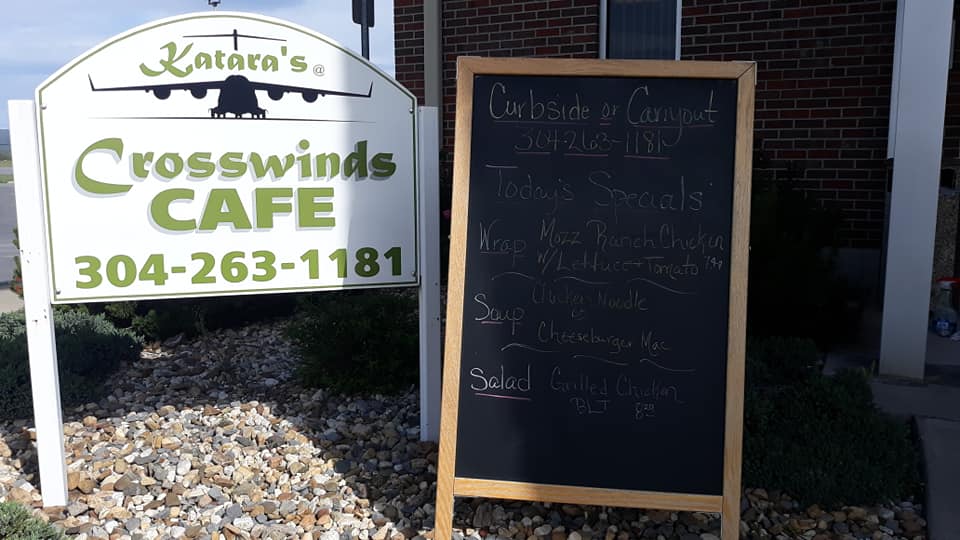 Katara's @
Crosswinds
CAFE
304-263-1181
Curbside or Carryout
304-263-1181
Today's Specials
Wrap Mozz Ranch Chicken
W/ Lettuce + Tomato
Soup Chicken Noodle
or
Cheeseburger Mac
Salad Grilled Chicken
BLT